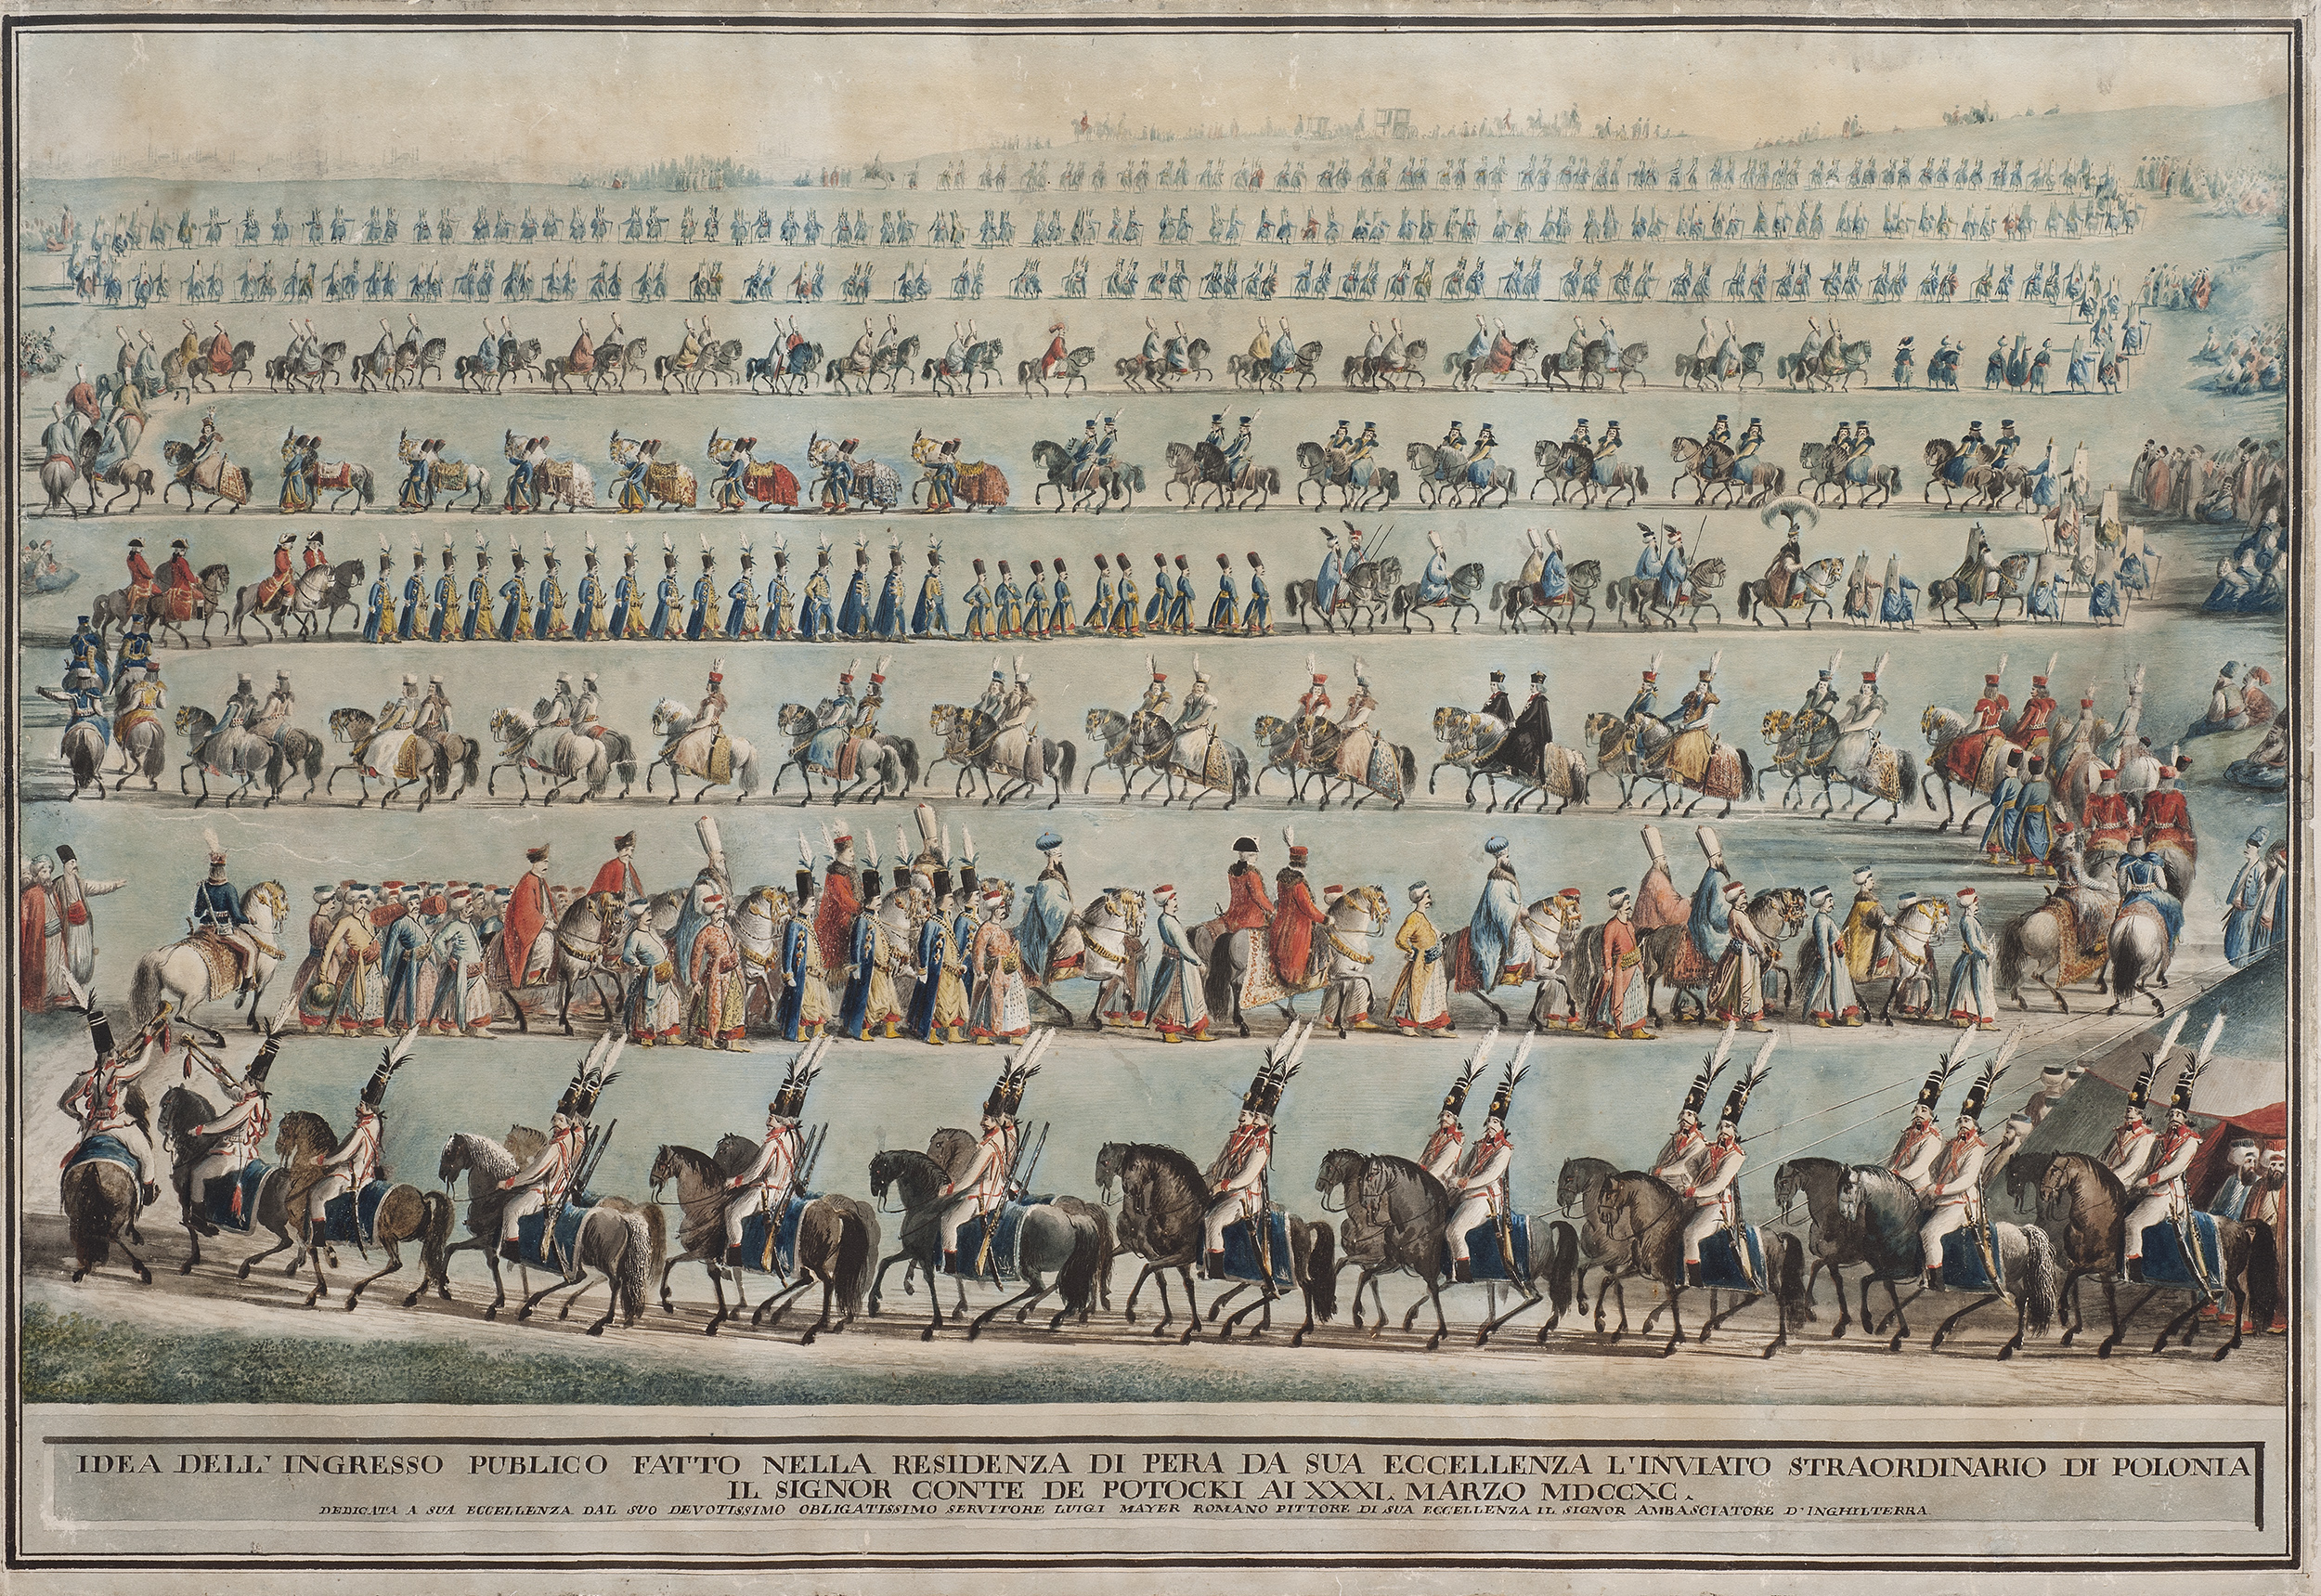 IDEA DELL' INGRESSO PUBLICO FATTO NELLA RESIDENZA DI PERA DA SUA ECCELLENZA L'INVIATO STRAORDINARIO DI POLONIA
IL SIGNOR CONTE DE POTOCKI AI XXXI. MARZO MDCCXC.
DEDICATA A SUA ECCELLENZA DAL SUO DEVOTISSIMO OBLIGATISSIMO SERVITORE LUIGI MAYER ROMANO PITTORE DI SUA ECCELLENZA IL SIGNOR AMBASCIATORE D'INGHILTERRA